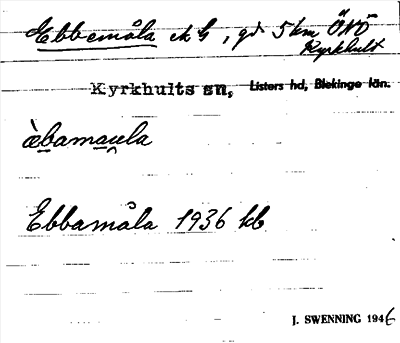 Ebbemåla ek G, gd 5 km ÖNÖ
Kyrkhult
Kyrkhults sn, Listers hd, Blekinge län.
æ̀bamau̯la
Ebbamåla 1936 kb
J. SWENNING 1946